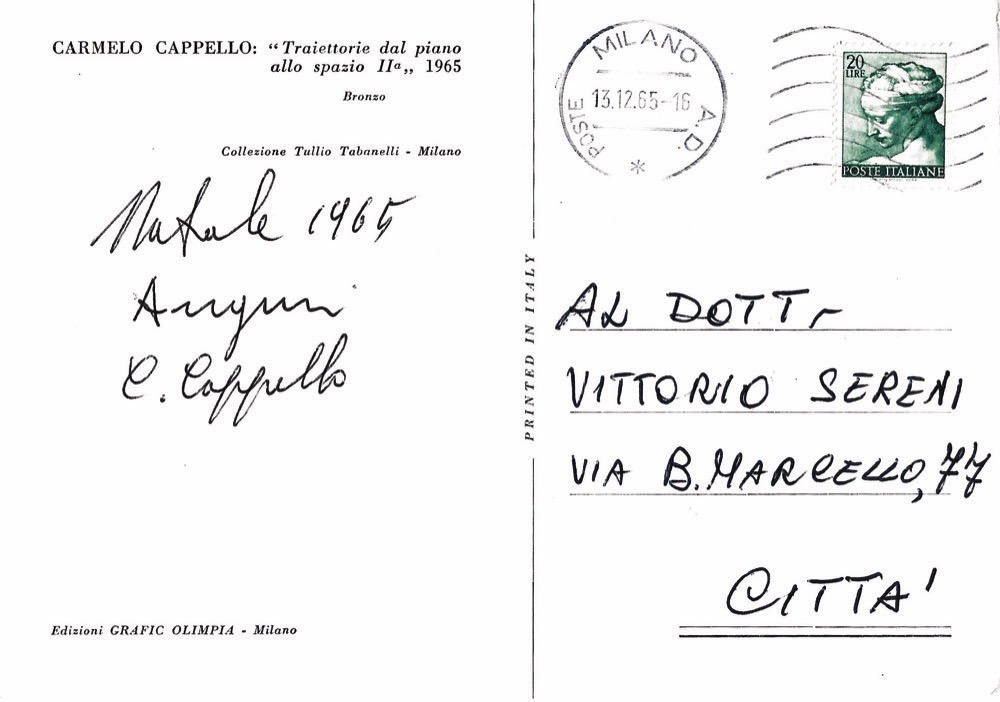 CARMELO CAPPELLO: “Traiettorie dal piano
allo spazio IIª„ 1965
Bronzo
Collezione Tullio Tabanelli - Milano
Natale 1965
Auguri
C. Cappello
Edizioni GRAFIC OLIMPIA - Milano
PRINTED IN ITALY
MILANO A.D.
13.12.65-16
POSTE
*
20
LIRE
POSTE ITALIANE
AL DOTT.
VITTORIO SERENI
VIA B. MARCELLO, 77
CITTA'